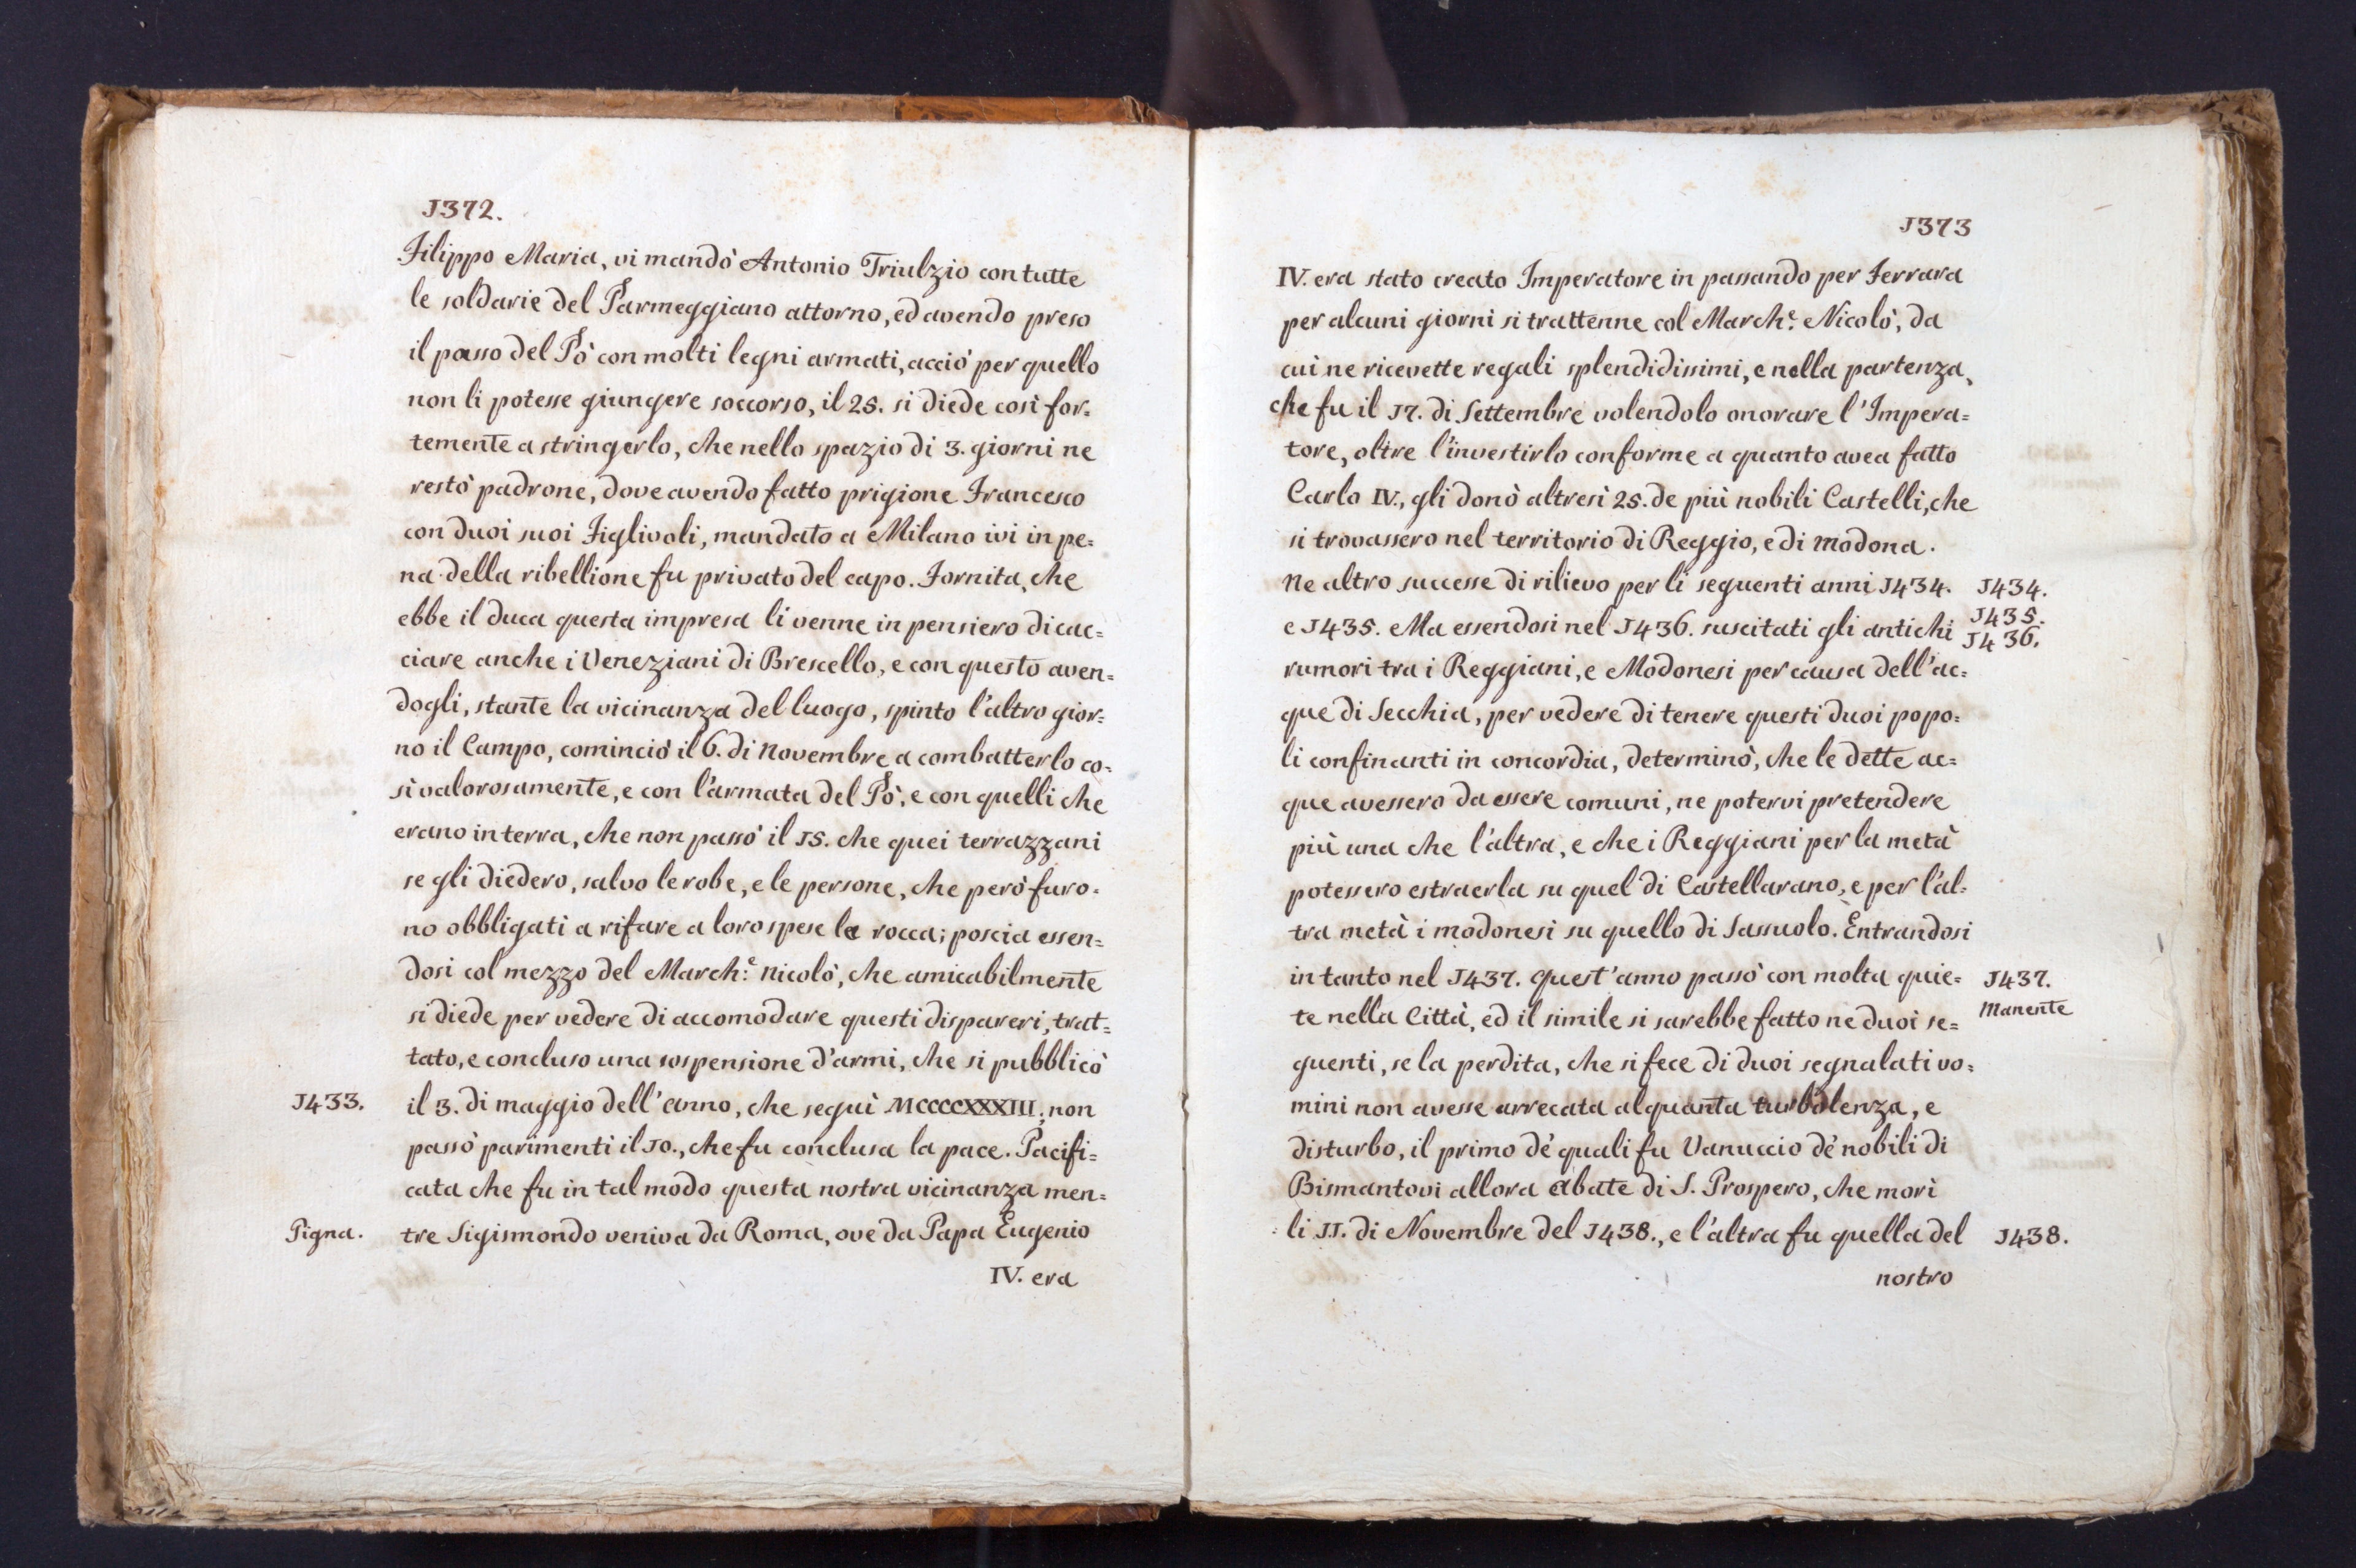 1372.
Filippo Maria, vi mandò Antonio Triulzio con tutte
le soldarie del Parmeggiano attorno, ed avendo preso
il passo del Pò con molti legni armati, acciò per quello
non li potesse giungere soccorso, il 25. si diede così for=
temente a stringerlo, che nello spazio di 3. giorni ne
restò padrone, dove avendo fatto prigione Francesco
con duoi suoi Figlivoli, mandato a Milano ivi in pe=
na della ribellione fu privato del capo. Fornita, che
ebbe il duca questa impresa li venne in pensiero di cac=
ciare anche i Veneziani di Brescello, e con questo aven=
dogli, stante la vicinanza del luogo, spinto l'altro gior=
no il Campo, cominciò il 6. di Novembre a combatterlo co=
sì valorosamente, e con l'armata del Pò, e con quelli che
erano in terra, che non passò il 15. che quei terrazzani
se gli diedero, salvo le robe, e le persone, che però furo=
no obbligati a rifare a loro spese la rocca; poscia essen=
dosi col mezzo del March:e Nicolò, che amicabilmente
si diede per vedere di accomodare questi dispareri, trat=
tato, e concluso una sospensione d'armi, che si pubblicò
1433. il 3. di maggio dell'anno, che seguì MCCCCXXXIII; non
passò parimenti il 10., che fu conclusa la pace. Pacifi=
cata che fu in tal modo questa nostra vicinanza men=
Pigna. tre Sigismondo veniva da Roma, ove da Papa Eugenio
IV. era
1373
IV. era stato creato Imperatore in passando per Ferrara
per alcuni giorni si trattenne col March:e Nicolò, da
cui ne ricevette regali splendidissimi, e nella partenza,
che fu il 17. di Settembre volendolo onorare l'Impera=
tore, oltre l'investirlo conforme a quanto avea fatto
Carlo IV., gli donò altresì 25. de più nobili Castelli, che
si trovassero nel territorio di Reggio, e di Modona.
Ne altro successe di rilievo per li seguenti anni 1434. 1434.
e 1435. Ma essendosi nel 1436. suscitati gli antichi 1435.
1436.
rumori tra i Reggiani, e Modonesi per causa dell'ac=
que di Secchia, per vedere di tenere questi duoi popo=
li confinanti in concordia, determinò, che le dette ac=
que avessero da essere comuni, ne potervi pretendere
più una che l'altra, e che i Reggiani per la metà
potessero estraerla su quel di Castellarano, e per l'al=
tra metà i modonesi su quello di Sassuolo. Entrandosi
in tanto nel 1437. quest'anno passò con molta quie= 1437.
te nella Città, ed il simile si sarebbe fatto ne duoi se= Manente
guenti, se la perdita, che si fece di duoi segnalati vo=
mini non avesse arrecata alquanta turbolenza, e
disturbo, il primo de' quali fu Vanuccio de' nobili di
Bismantovi allora abate di S. Prospero, che morì
li 11. di Novembre del 1438., e l'altra fu quella del 1438.
nostro